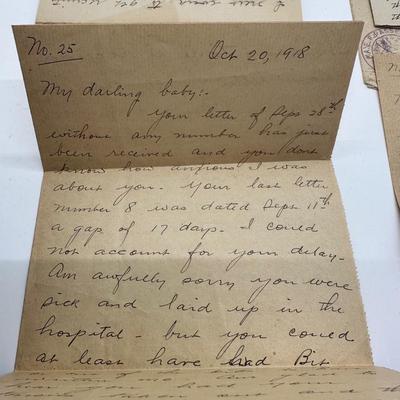 No. 25
Oct 20, 1918
My darling baby:-
Your letter of Sept 28th
without any number has just
been received and you dont
know how anxious I was
about you. Your last letter
number 8 was dated Sept 11th
a gap of 17 days. I could
not account for your delay-
Am awfully sorry you were
sick and laid up in the
hospital - but you could
at least have had Bit